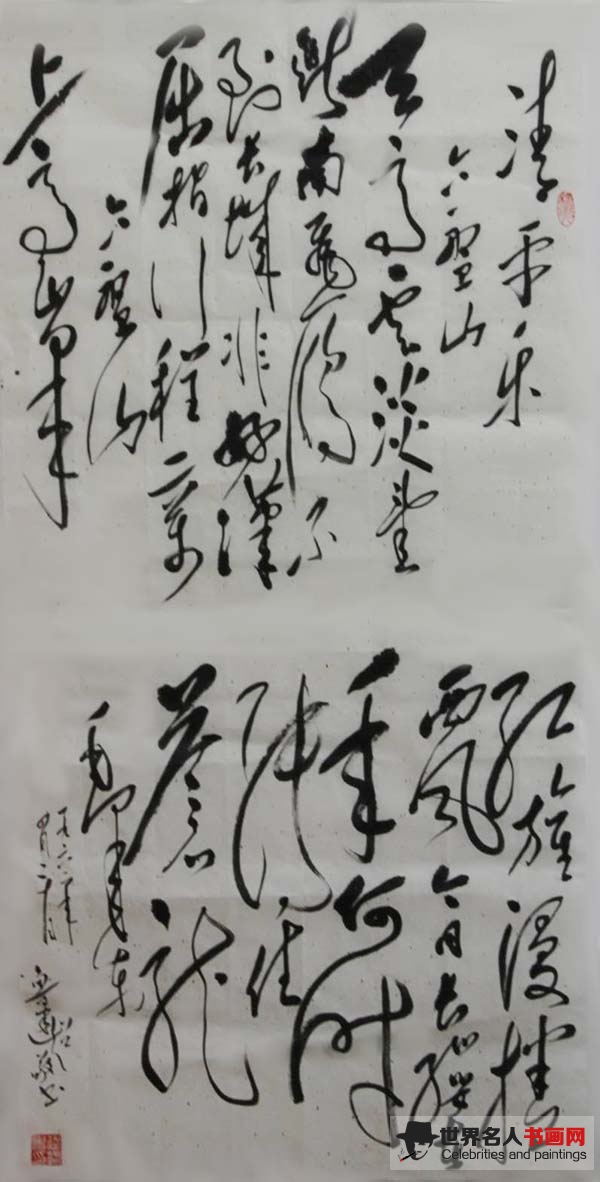 清平乐
六盘山
天高云淡望
断南飞雁不
到长城非好汉
屈指行程二万
六盘山
上高峰
红旗漫捲
西风今日长缨在
手何时
缚住
苍龙
毛泽东
世界名人书画网
Celebrities and paintings